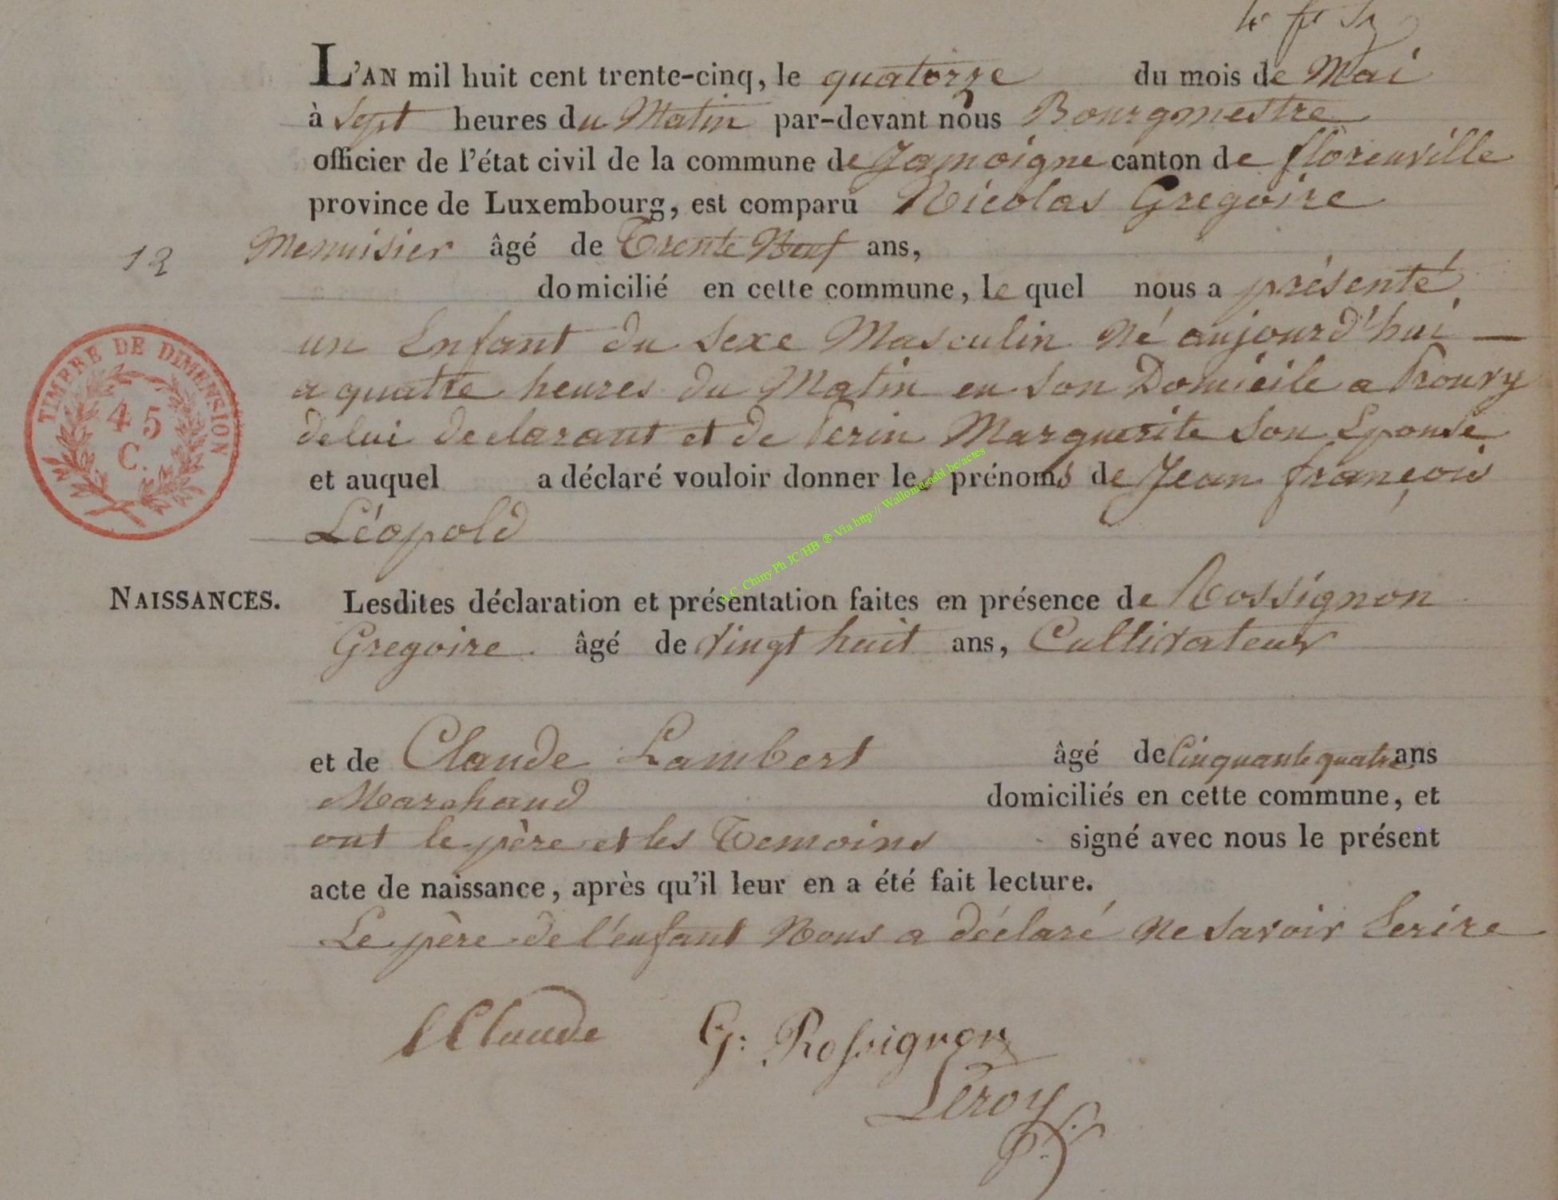 L'AN mil huit cent trente-cinq, le quatorze du mois de Mai
à Sept heures du Matin par-devant nous Bourgmestre
officier de l'état civil de la commune de Jamoigne canton de florenville
province de Luxembourg, est comparu Nicolas Gregoire
12 Menuisier âgé de Trente Neuf ans,
domicilié en cette commune, le quel nous a présenté
un Enfant du Sexe Masculin Né aujourd'hui —
a quatre heures du Matin en Son Domicile a Prouvy
de lui declarant et de Perin Marguerite Son Epouse
et auquel a déclaré vouloir donner les prénoms de Jean françois
Léopold
TIMBRE DE DIMENSION
45
C.
A.C. Chiny Ph JC HB @ Via http://Wallonia-asbl.be/actes
NAISSANCES. Lesdites déclaration et présentation faites en présence de Rossignon
Gregoire. âgé de Vingt huit ans, Cultivateur
et de Claude Lambert âgé de Cinquante quatre ans
Marchand domiciliés en cette commune, et
ont le père et les Temoins signé avec nous le présent
acte de naissance, après qu'il leur en a été fait lecture.
Le père de l'enfant Nous a déclaré Ne Savoir Ecrire
LClaude G: Rossignon
Leroy